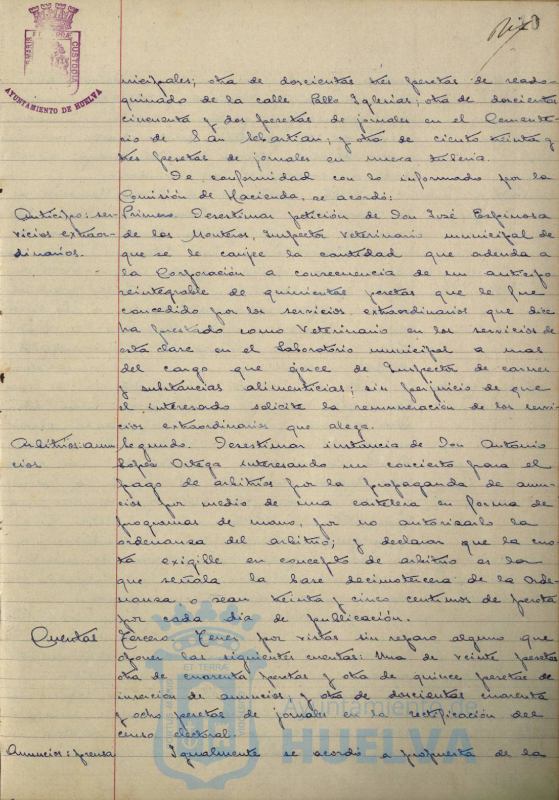 AYUNTAMIENTO DE HUELVA
nicipales; otra de doscientas tres pesetas de reado-
quinado de la calle Pablo Iglesias; otra de doscientas
cincuenta y dos pesetas de jornales en el Cemente-
rio de San Sebastian; y otra de ciento treinta y
tres pesetas de jornales en nueva tubería.
De conformidad con lo informado por la
Comisión de Hacienda, se acordó:
Anticipo: ser-
vicios extraor-
dinarios.
Primero. Desestimar petición de Don José Espinosa
de los Monteros, Inspector Veterinario municipal de
que se le canjee la cantidad que adeuda a
la Corporación a consecuencia de un anticipo
reintegrable de quinientas pesetas que le fue
concedido por los servicios extraordinarios que dice
ha prestado como Veterinario en los servicios de
esta clase en el Laboratorio municipal a mas
del cargo que ejerce de Inspector de carnes
y substancias alimenticias; sin perjuicio de que
el interesado solicite la remuneración de los servi-
cios extraordinarios que alega.
Arbitrios: anun-
cios.
Segundo. Desestimar instancia de Don Antonio
López Ortega interesando un concierto para el
pago de arbitrios por la propaganda de anun-
cios por medio de una cartelera en forma de
programas de mano, por no autorizarlo la
ordenanza del arbitrio; y declarar que la cuo-
ta exigible en concepto de arbitrio es la
que señala la base decimotercera de la Orde-
nanza o sean treinta y cinco centimos de peseta
por cada día de publicación.
Cuentas
Tercero. Tener por vistas sin reparo alguno que
oponer las siguientes cuentas: Una de veinte pesetas
otra de cuarenta pesetas y otra de quince pesetas de
inserción de anuncios; y otra de doscientas cuarenta
y ocho pesetas de jornales en la rectificación del
censo electoral.
Anuncios: prensa
Igualmente se acordó a propuesta de la
Ayuntamiento de
HUELVA